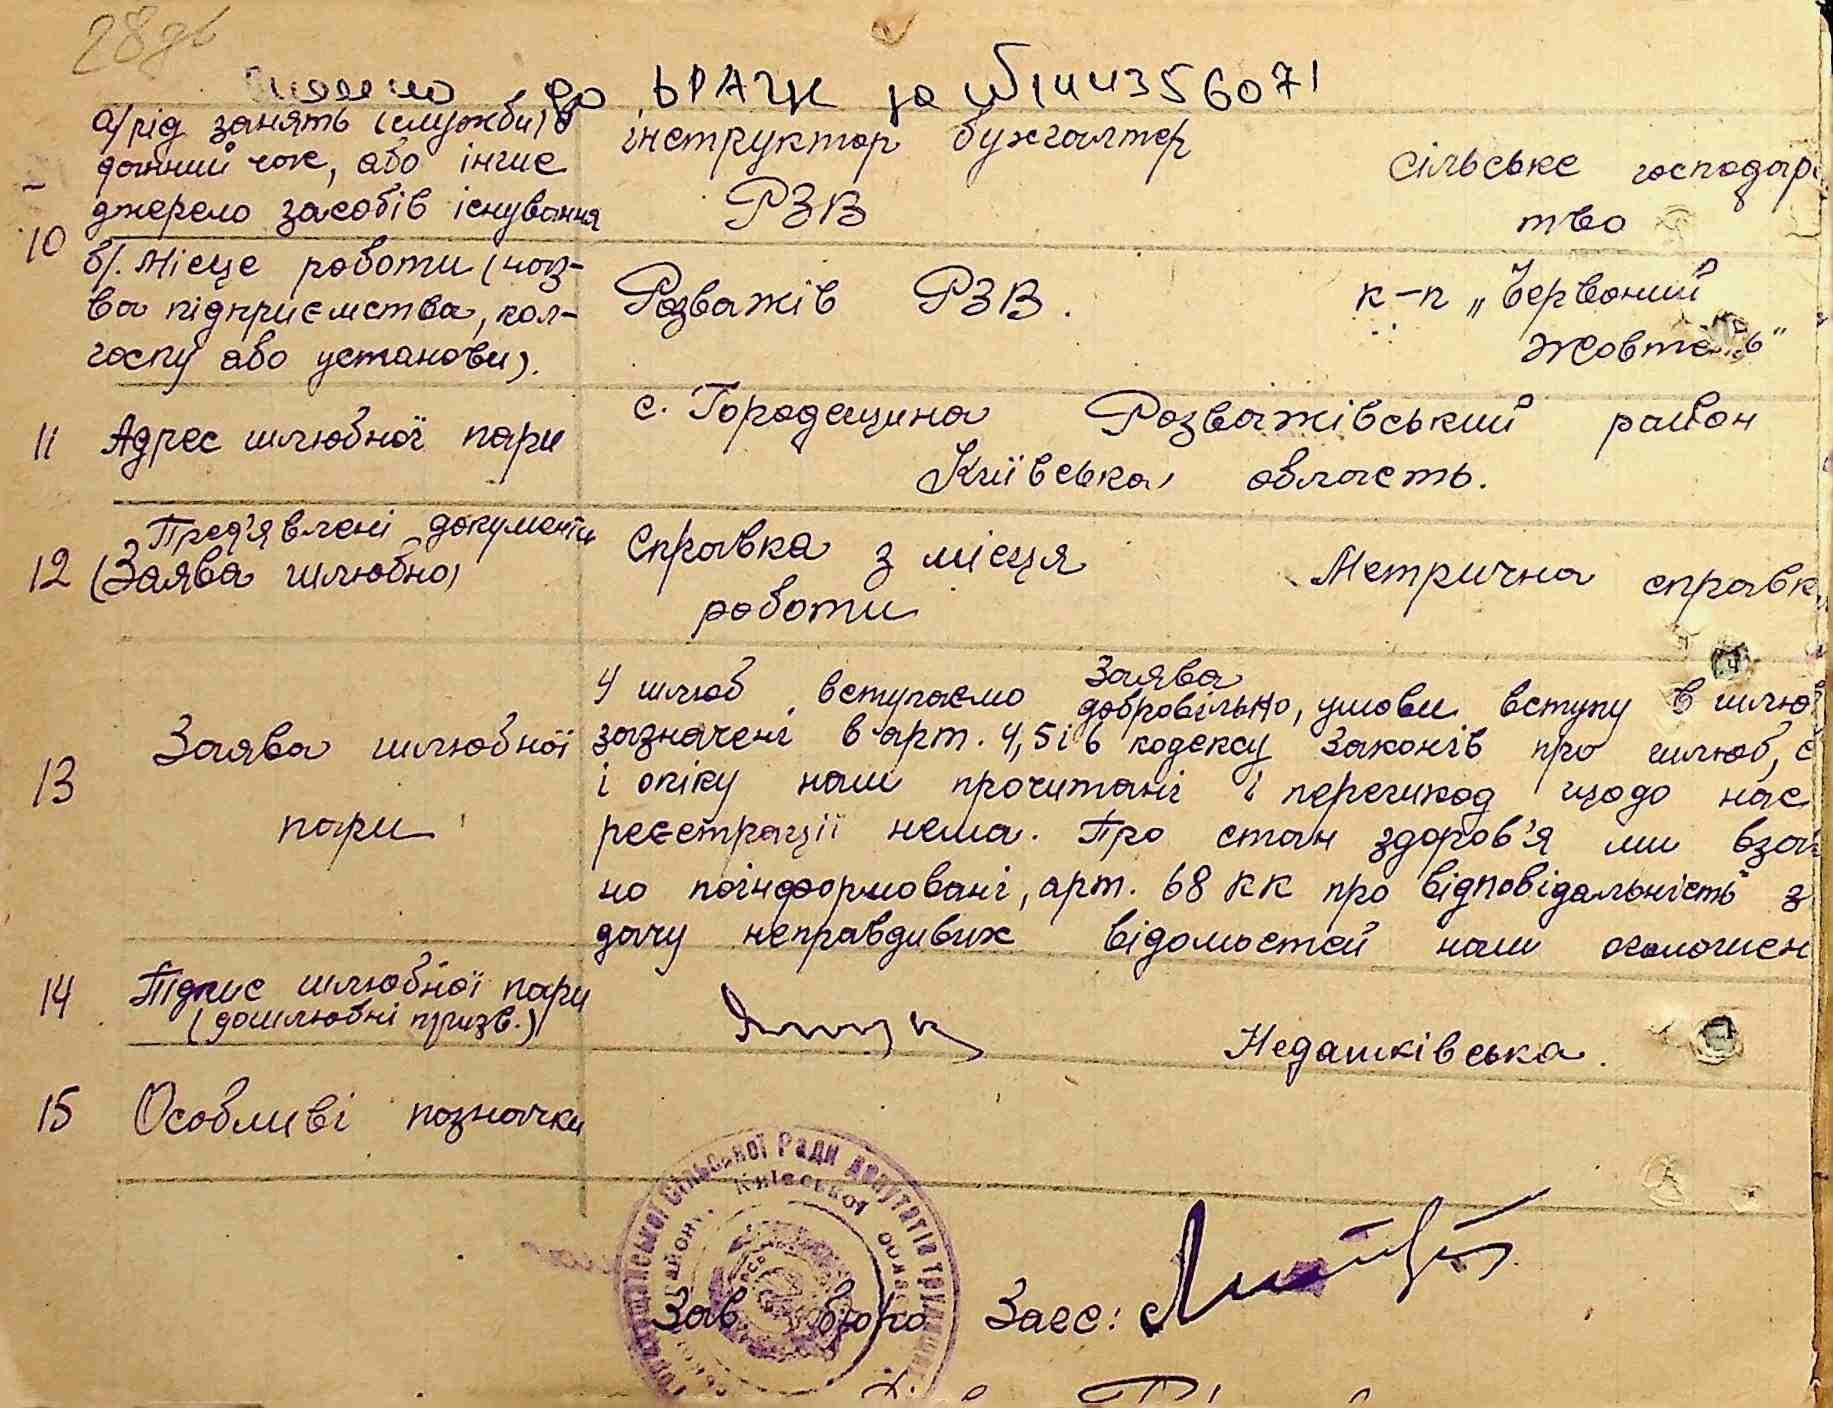 28 зв
внесено до ДРАЦС за №1444356071
а/рід занять (служби) в
данний час, або інше
джерело засобів існування
інструктор бухгалтер
РЗВ
сільське господарс
тво
10
б/. Місце роботи (наз-
ва підприємства, кол-
госпу або установи).
Розважів РЗВ.
к-п „Червоний
Жовтень"
11 Адрес шлюбної пари
с. Городещина Розважівський район
Київська область.
12 Пред'явлені документи
(Заява шлюбна)
справка з місця
роботи
Метрична справк
13 Заява шлюбної
пари
Заява
У шлюб вступаємо добровільно, умови вступу в шлюб
зазначені в арт. 4, 5 і 6 кодексу законів про шлюб, с
і опіку нам прочитані і перешкод щодо нас
реєстрації нема. Про стан здоров'я ми вза
но поінформовані, арт. 68 КК про відповідальність з
дачу неправдивих відомостей нам оголошен
14 Підпис шлюбної пари
(дошлюбні призв.)
Недашківська.
15 Особливі позначки
Городещанської Сільської Ради депутатів трудящих
району, Київської області
Зав бюро Загс: